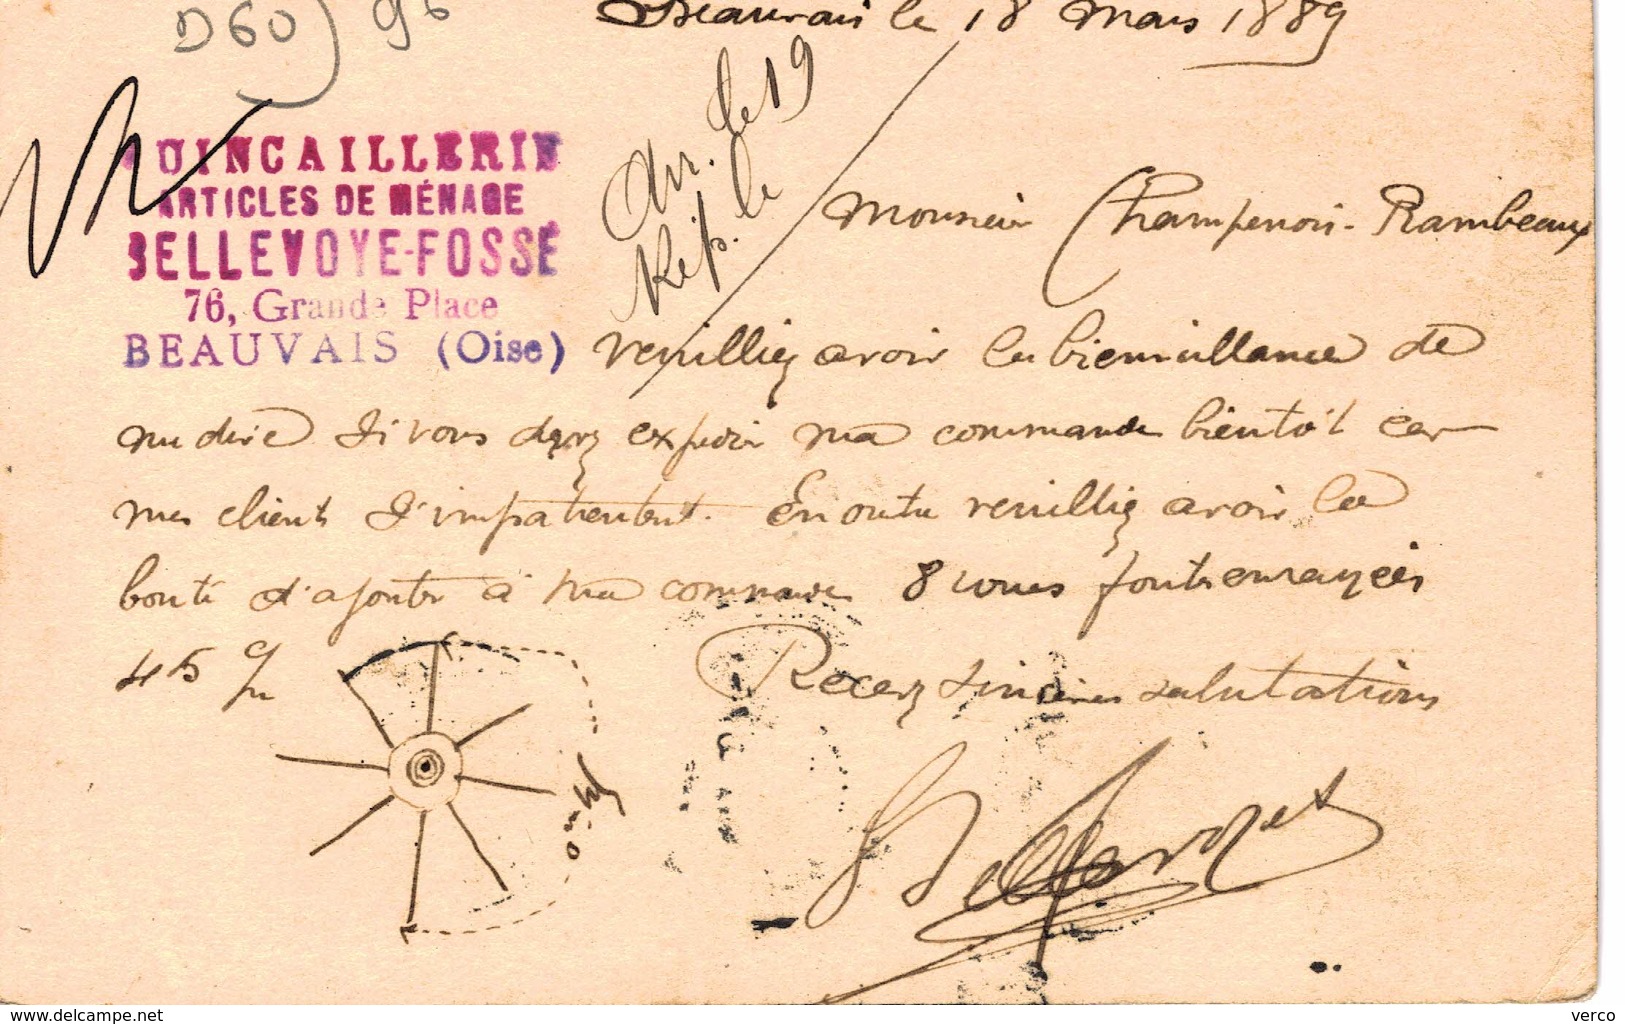 D60) 96
Beauvais le 18 Mars 1889
Arr. le 19
Rép. le
QUINCAILLERIE
ARTICLES DE MÉNAGE
BELLEVOYE-FOSSÉ
76, Grande Place
BEAUVAIS (Oise)
Monsieur Champenois-Rambeaux
veuilliez avoir la bienveillance de
me dire si vous deyez expedier ma commande bientôt car
mes clients s'impatientent. En outre veuilliez avoir la
bonté d'ajouter à ma commande 8 roues fonte enrayées
45 c/m
Recevez sincères salutations
0m45
Bellevoye
www.delcampe.net
verco